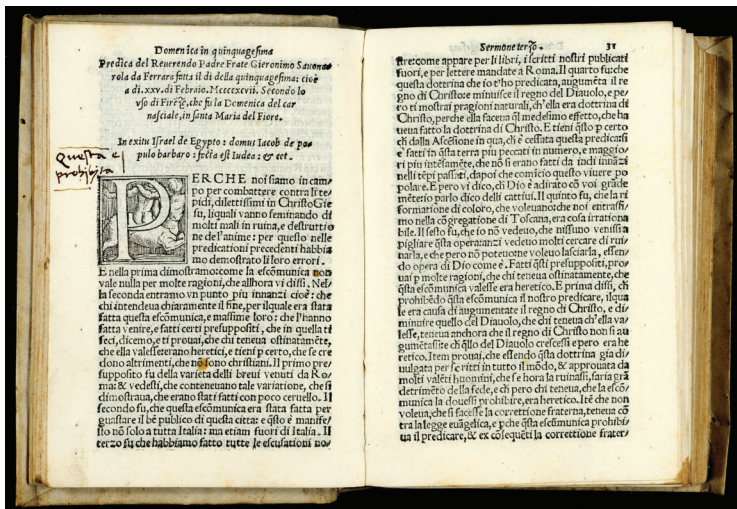 Domenica in quinquagesima
Predica del Reuerendo Padre Frate Gieronimo Sauona
rola da Ferrara fatta il di della quinquagesima: cioè
a di.xxv.di Febraio. Mccccxcvii. Secondo lo
vso di Firẽze, che fu la Domenica del car
nasciale, in santa Maria del Fiore.
In exitu Israel de Egypto: domus Iacob de po
pulo barbaro: facta est Iudea: & cet.
Questa è
prohibita
PERCHE noi siamo in cam
po per combattere contra li te
pidi, dilettissimi in Christo Gie
su, liquali vanno seminando di
molti mali in ruina, e destruttio
ne dell'anime: per questo nelle
predicationi precedenti habbia
mo demostrato li loro errori.
E nella prima dimostramo: come la escõmunica non
vale nulla per molte ragioni, che allhora vi dissi. Nel
la seconda entramo vn punto piu innanzi cioè: che
chi intendeua chiaramente il fine, per ilquale era stata
fatta questa escõmunica, e massime loro: che l'hanno
fatta venire, e fatti certi presuppositi, che in quella ti
feci, dicemo, e ti prouai, che chi teneua ostinatamẽte,
che ella valesse terano heretici, e tieni p certo, che se cre
dono altrimenti, che nõ sono christiani. Il primo pre
supposito fu della varieta delli breui venuti da Ro
ma: & vedesti, che conteneuano tale variatione, che si
dimostraua, che erano stati fatti con poco ceruello. Il
secondo fu, che questa escõmunica era stata fatta per
guastare il bẽ publico di questa citta: e q̃sto è manife
sto nõ solo a tutta Italia: ma etiam fuori di Italia. Il
terzo fu che habbiamo fatto tutte le escusationi no
Sermone terzo. 31
stre: come appare per li libri, i scritti nostri publicati
fuori, e per lettere mandate a Roma. Il quarto fu: che
questa dottrina che io t'ho predicata, augumẽta il re
gno di Christo: e minuisce il regno del Diauolo, e pe
rò ti mostrai pragioni naturali, ch'ella era dottrina di
Christo, perche ella faceua q̃l medesimo effetto, che ha
ueua fatto la dottrina di Christo. E tieni q̃sto p certo
che dalla Ascẽsione in qua, ch'è cessata questa predicassi
e fatti in q̃sta terra piu peccati in numero, e maggio
ri piu intẽsamẽte, che nõ si erano fatti da indi innãzi
nelli tẽpi passati, dapoi che comicio questo viuere po
polare. E pero vi dico, ch Dio è adirato cõ voi grãde
mẽte: io parlo dico delli cattiui. Il quinto fu, che la ri
formatione di coloro, che voleuano: che noi entrassi
mo nella cõgregatione di Toscana, era cosa irrationa
bile. Il sesto fu, che io nõ vedeuo, che nissuno venissi a
pigliare q̃sta opera: anzi vedeuo molti cercare di rui
narla, e che pero nõ poteuo: ne voleuo lasciarla, essen
do opera di Dio come è. Fatti q̃sti presuppositi, pro
uai p molte ragioni, che chi teneua ostinatamente, che
q̃sta escõmunica valesse era heretico. E prima dissi, ch
prohibẽdo q̃sta escõmunica il nostro predicare, ilqua
le era causa di augumentare il regno di Christo, e di
minuire quello del Diauolo, che chi teneua ch'ella va
lesse, teneua anchora che il regno di Christo non si au
gumẽtassi: e ch q̃llo del Diauolo crescessi e pero era he
retico. Item prouai, che essendo q̃sta dottrina gia di
uulgata per scritti in tutto il mõdo, & approuata da
molti valẽti huomini, che se hora la ruinassi, faria grã
detrimẽto della fede, e ch pero chi teneua, che la escõ
munica la douessi prohibire, era heretico. Itẽ che non
voleua, che si facesse la correttione fraterna, teneua cõ
tra la legge euãgelica, e pche q̃sta escõmunica prohibi
ua il predicare, & ex cõsequẽti la correttione frater